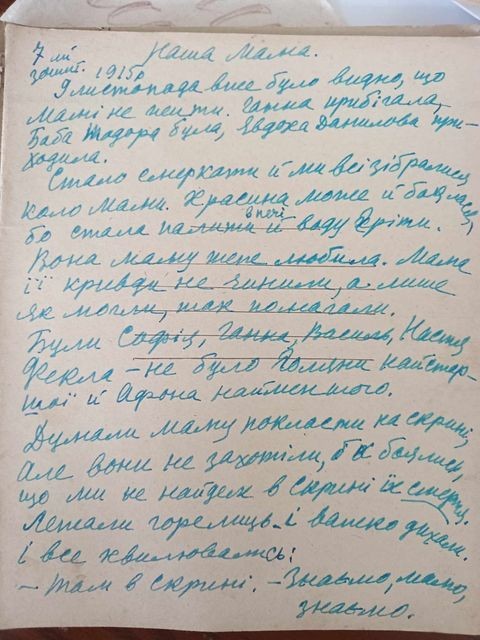 7 ий Наша Мама.
зошит. 1915р
9 листопада вже було видно, що
мамі не жити. Ганна прибігала,
Баба Тодора була, Явдоха Данилова при-
ходила.
Стало смеркати й ми всі зібралися
коло мами. Красина може й боялася,
бо стала палити в печі й воду гріти.
Вона маму теж любила. Мама
її кривди не чинили, а лише
як могли, так помагали.
Були Софія, Ганна, Василь, Настя
Фекла – не було Домяни найстар-
шої й Афона найменшого.
Думали маму покласти на скрині,
але вони не захотіли, бо боялись,
що ми не найдем в скрині їх смертя.
Лежали горелиць і важко дихали.
і все хвилювались:
– Там в скрині. – Знаємо, мамо,
знаємо.